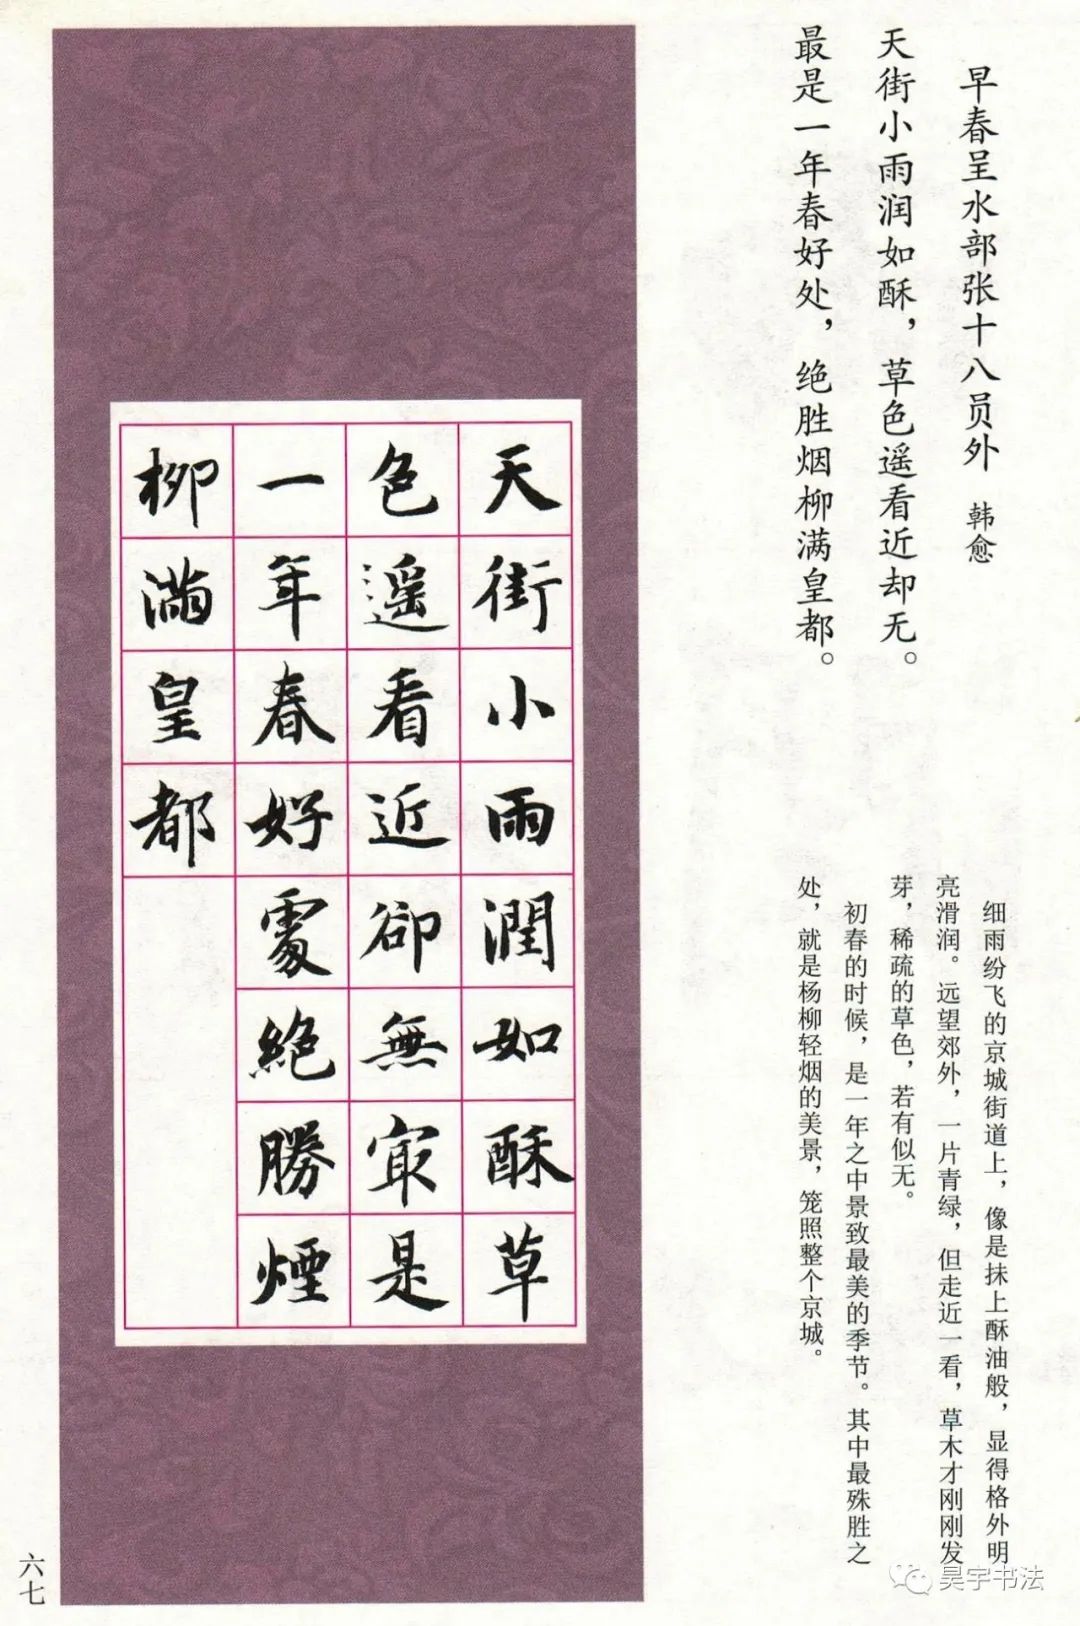 早春呈水部张十八员外　韩愈
天街小雨润如酥，草色遥看近却无。
最是一年春好处，绝胜烟柳满皇都。
细雨纷飞的京城街道上，像是抹上酥油般，显得格外明
亮滑润。远望郊外，一片青绿，但走近一看，草木才刚刚发
芽，稀疏的草色，若有似无。
初春的时候，是一年之中景致最美的季节。其中最殊胜之
处，就是杨柳轻烟的美景，笼照整个京城。
天街小雨潤如酥草
色遥看近卻無冣是
一年春好處絶勝煙
柳滿皇都
六七
昊宇书法